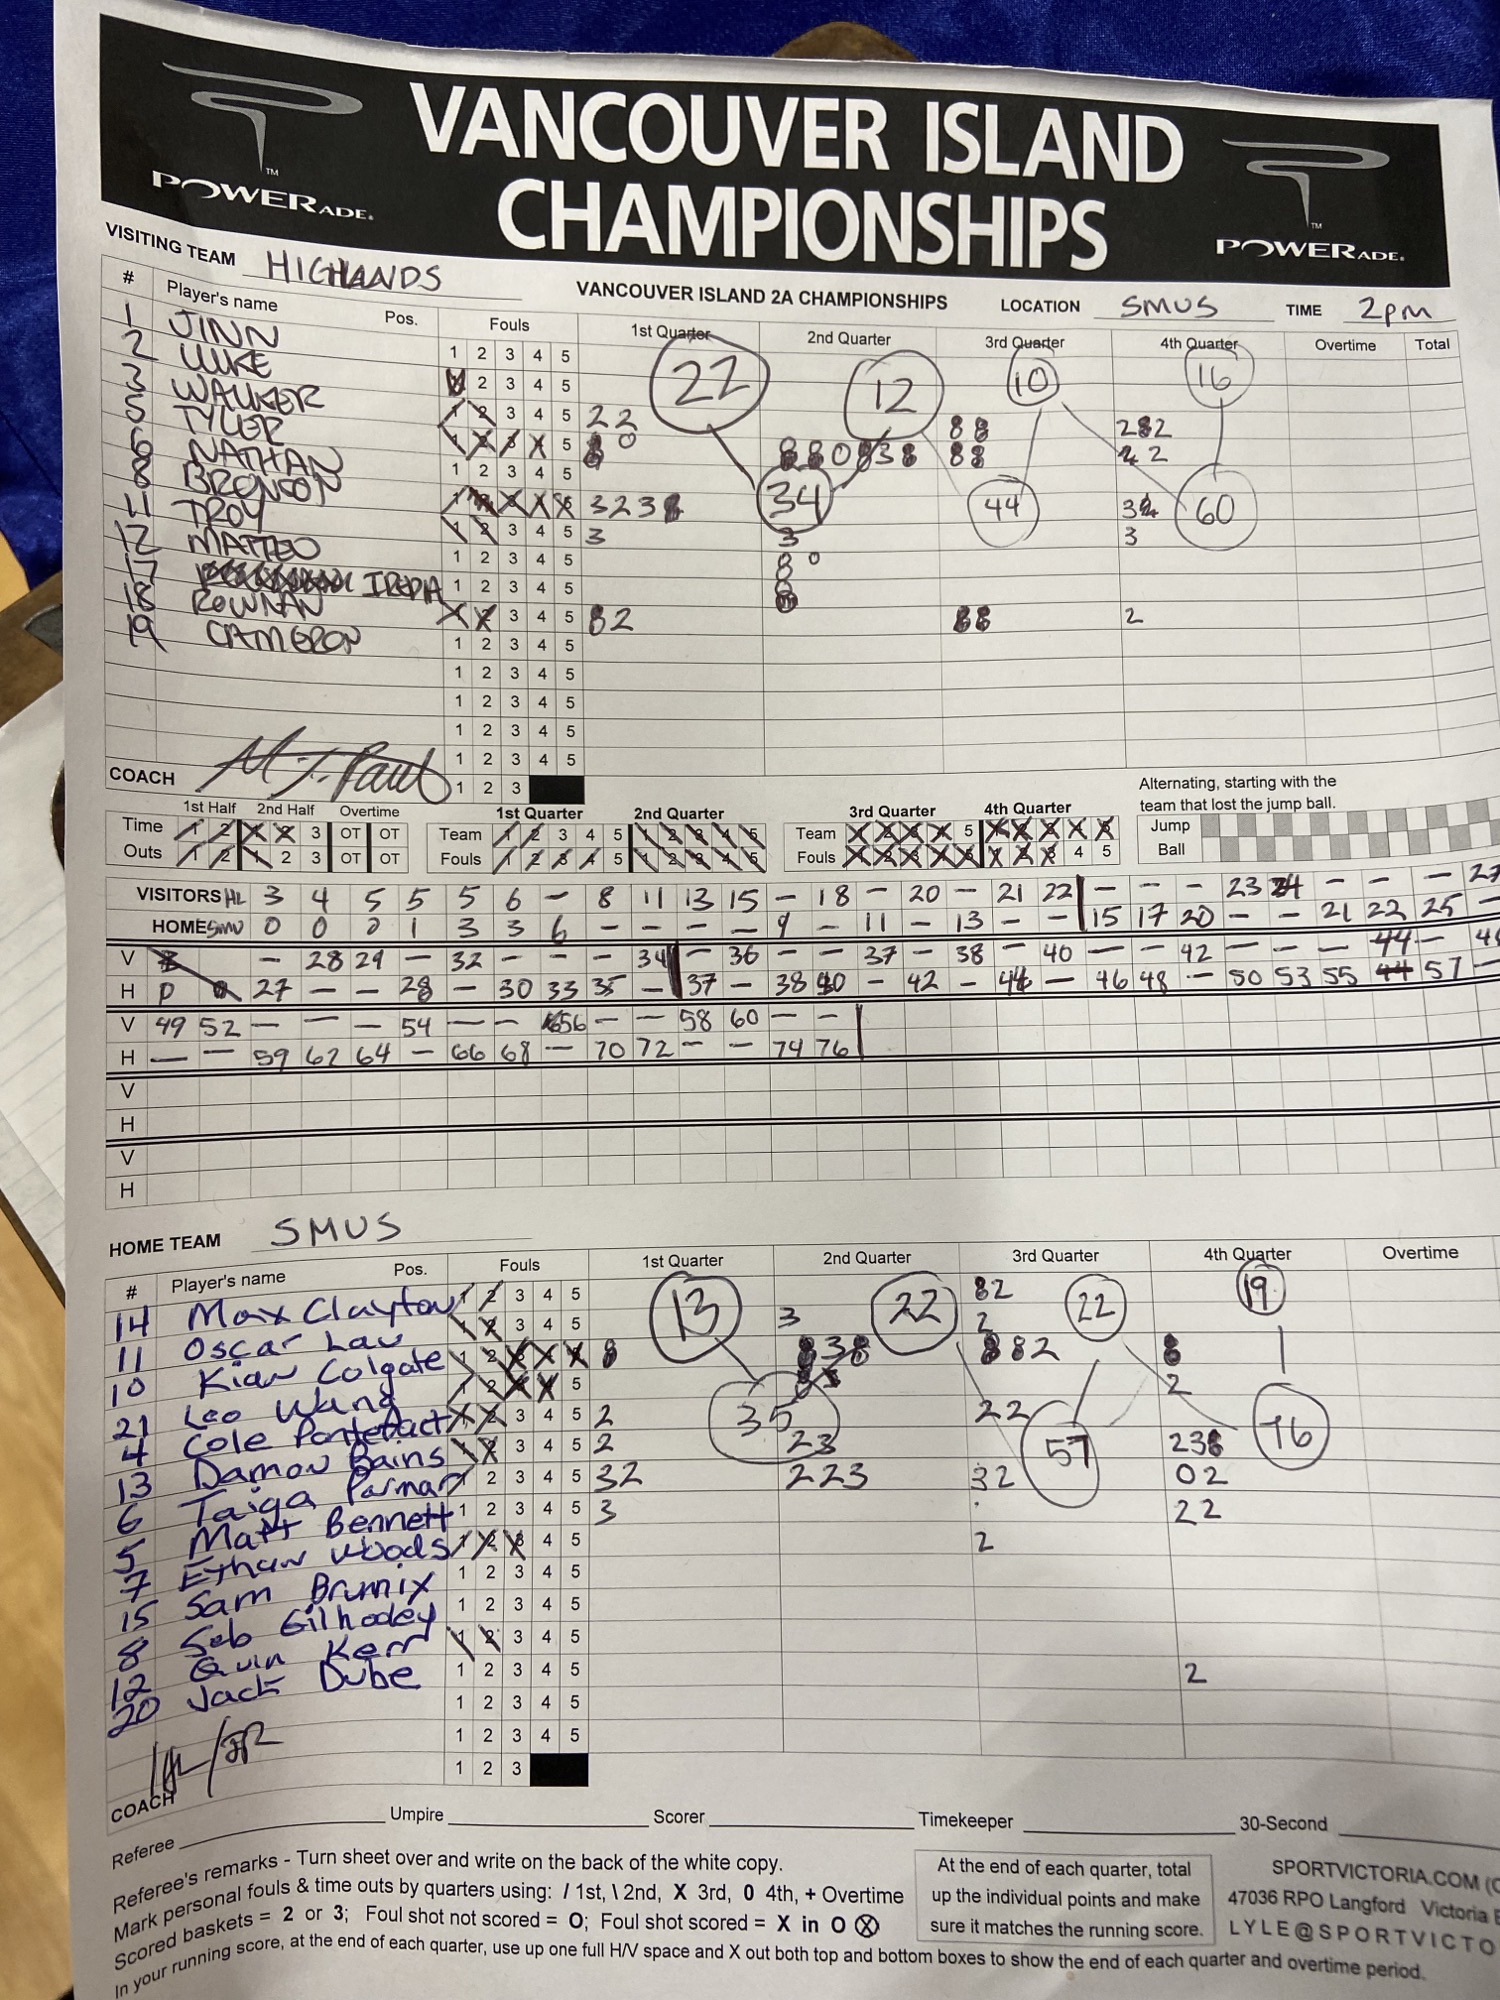 VANCOUVER ISLAND
CHAMPIONSHIPS
TM
POWERADE.
TM
POWERADE.
VISITING TEAM HIGHLANDS
VANCOUVER ISLAND 2A CHAMPIONSHIPS LOCATION SMUS TIME 2pm
# Player's name Pos. Fouls 1st Quarter 2nd Quarter 3rd Quarter 4th Quarter Overtime Total
22 12 10 16
1 JINN 1 2 3 4 5
2 LUKE 2 3 4 5
3 WALKER 1 2 3 4 5 22
5 TYLER
6 NATHAN 1 2 3 4 5
8 BRONSON
11 TROY 1 2 3 4 5 3 3 3
12 MATTEO 1 2 3 4 5
17 IREDIA 1 2 3 4 5
18 ROWNAN
19 CAMERON 1 2 3 4 5
34 44 60
1 2 3 4 5
1 2 3 4 5
1 2 3 4 5
1 2 3 4 5
COACH M. J. Paul 1 2 3
1st Half 2nd Half Overtime 1st Quarter 2nd Quarter 3rd Quarter 4th Quarter
Alternating, starting with the
team that lost the jump ball.
Time 1 2 1 2 3 OT OT Team 1 2 3 4 5 1 2 3 4 5 Team 1 2 3 4 5 1 2 3 4 5 Jump
Outs 1 2 1 2 3 OT OT Fouls 1 2 3 4 5 1 2 3 4 5 Fouls 1 2 3 4 5 1 2 3 4 5 Ball
VISITORS HL 3 4 5 5 5 6 - 8 11 13 15 - 18 - 20 - 21 22 - - - 23 24 - - - - 27
HOME SMU 0 0 0 1 3 3 6 - - - - 9 - 11 - 13 - - 15 17 20 - - 21 22 25 -
V - 28 29 - 32 - - - 34 - 36 - - 37 - 38 - 40 - - 42 - - - - 44 -
H 27 - - 28 - 30 33 35 - 37 - 38 40 - 42 - 44 - 46 48 - 50 53 55 44 57 -
V 49 52 - - - 54 - - 56 - - 58 60 - -
H - - 59 62 64 - 66 68 - 70 72 - - 74 76
V
H
V
H
HOME TEAM SMUS
# Player's name Pos. Fouls 1st Quarter 2nd Quarter 3rd Quarter 4th Quarter Overtime
13 22 22 19
14 Max Clayton 1 2 3 4 5
11 Oscar Lau 1 2 3 4 5 3 2
10 Kian Colgate 1 2
21 Leo Wang 5 2
4 Cole Pontefact 3 4 5 2 22
13 Damon Bains 1 2 3 4 5 2 23
6 Taiga Parmar 1 2 3 4 5 32 223 32 02
5 Matt Bennett 1 2 3 4 5 3 22
7 Ethan Woods 4 5 2
15 Sam Brumix 1 2 3 4 5
8 Seb Gilhooley 1 2 3 4 5
12 Quin Kerr 1 2 3 4 5
20 Jack Dube 1 2 3 4 5 2
35 57 76
1 2 3 4 5
1 2 3 4 5
COACH 1 2 3
Referee Umpire Scorer Timekeeper 30-Second
Referee's remarks - Turn sheet over and write on the back of the white copy.
Mark personal fouls & time outs by quarters using: / 1st, \ 2nd, X 3rd, 0 4th, + Overtime
Scored baskets = 2 or 3; Foul shot not scored = O; Foul shot scored = X in O ⊗
In your running score, at the end of each quarter, use up one full H/V space and X out both top and bottom boxes to show the end of each quarter and overtime period.
At the end of each quarter, total
up the individual points and make
sure it matches the running score.
SPORTVICTORIA.COM
47036 RPO Langford Victoria
LYLE@SPORTVICTO